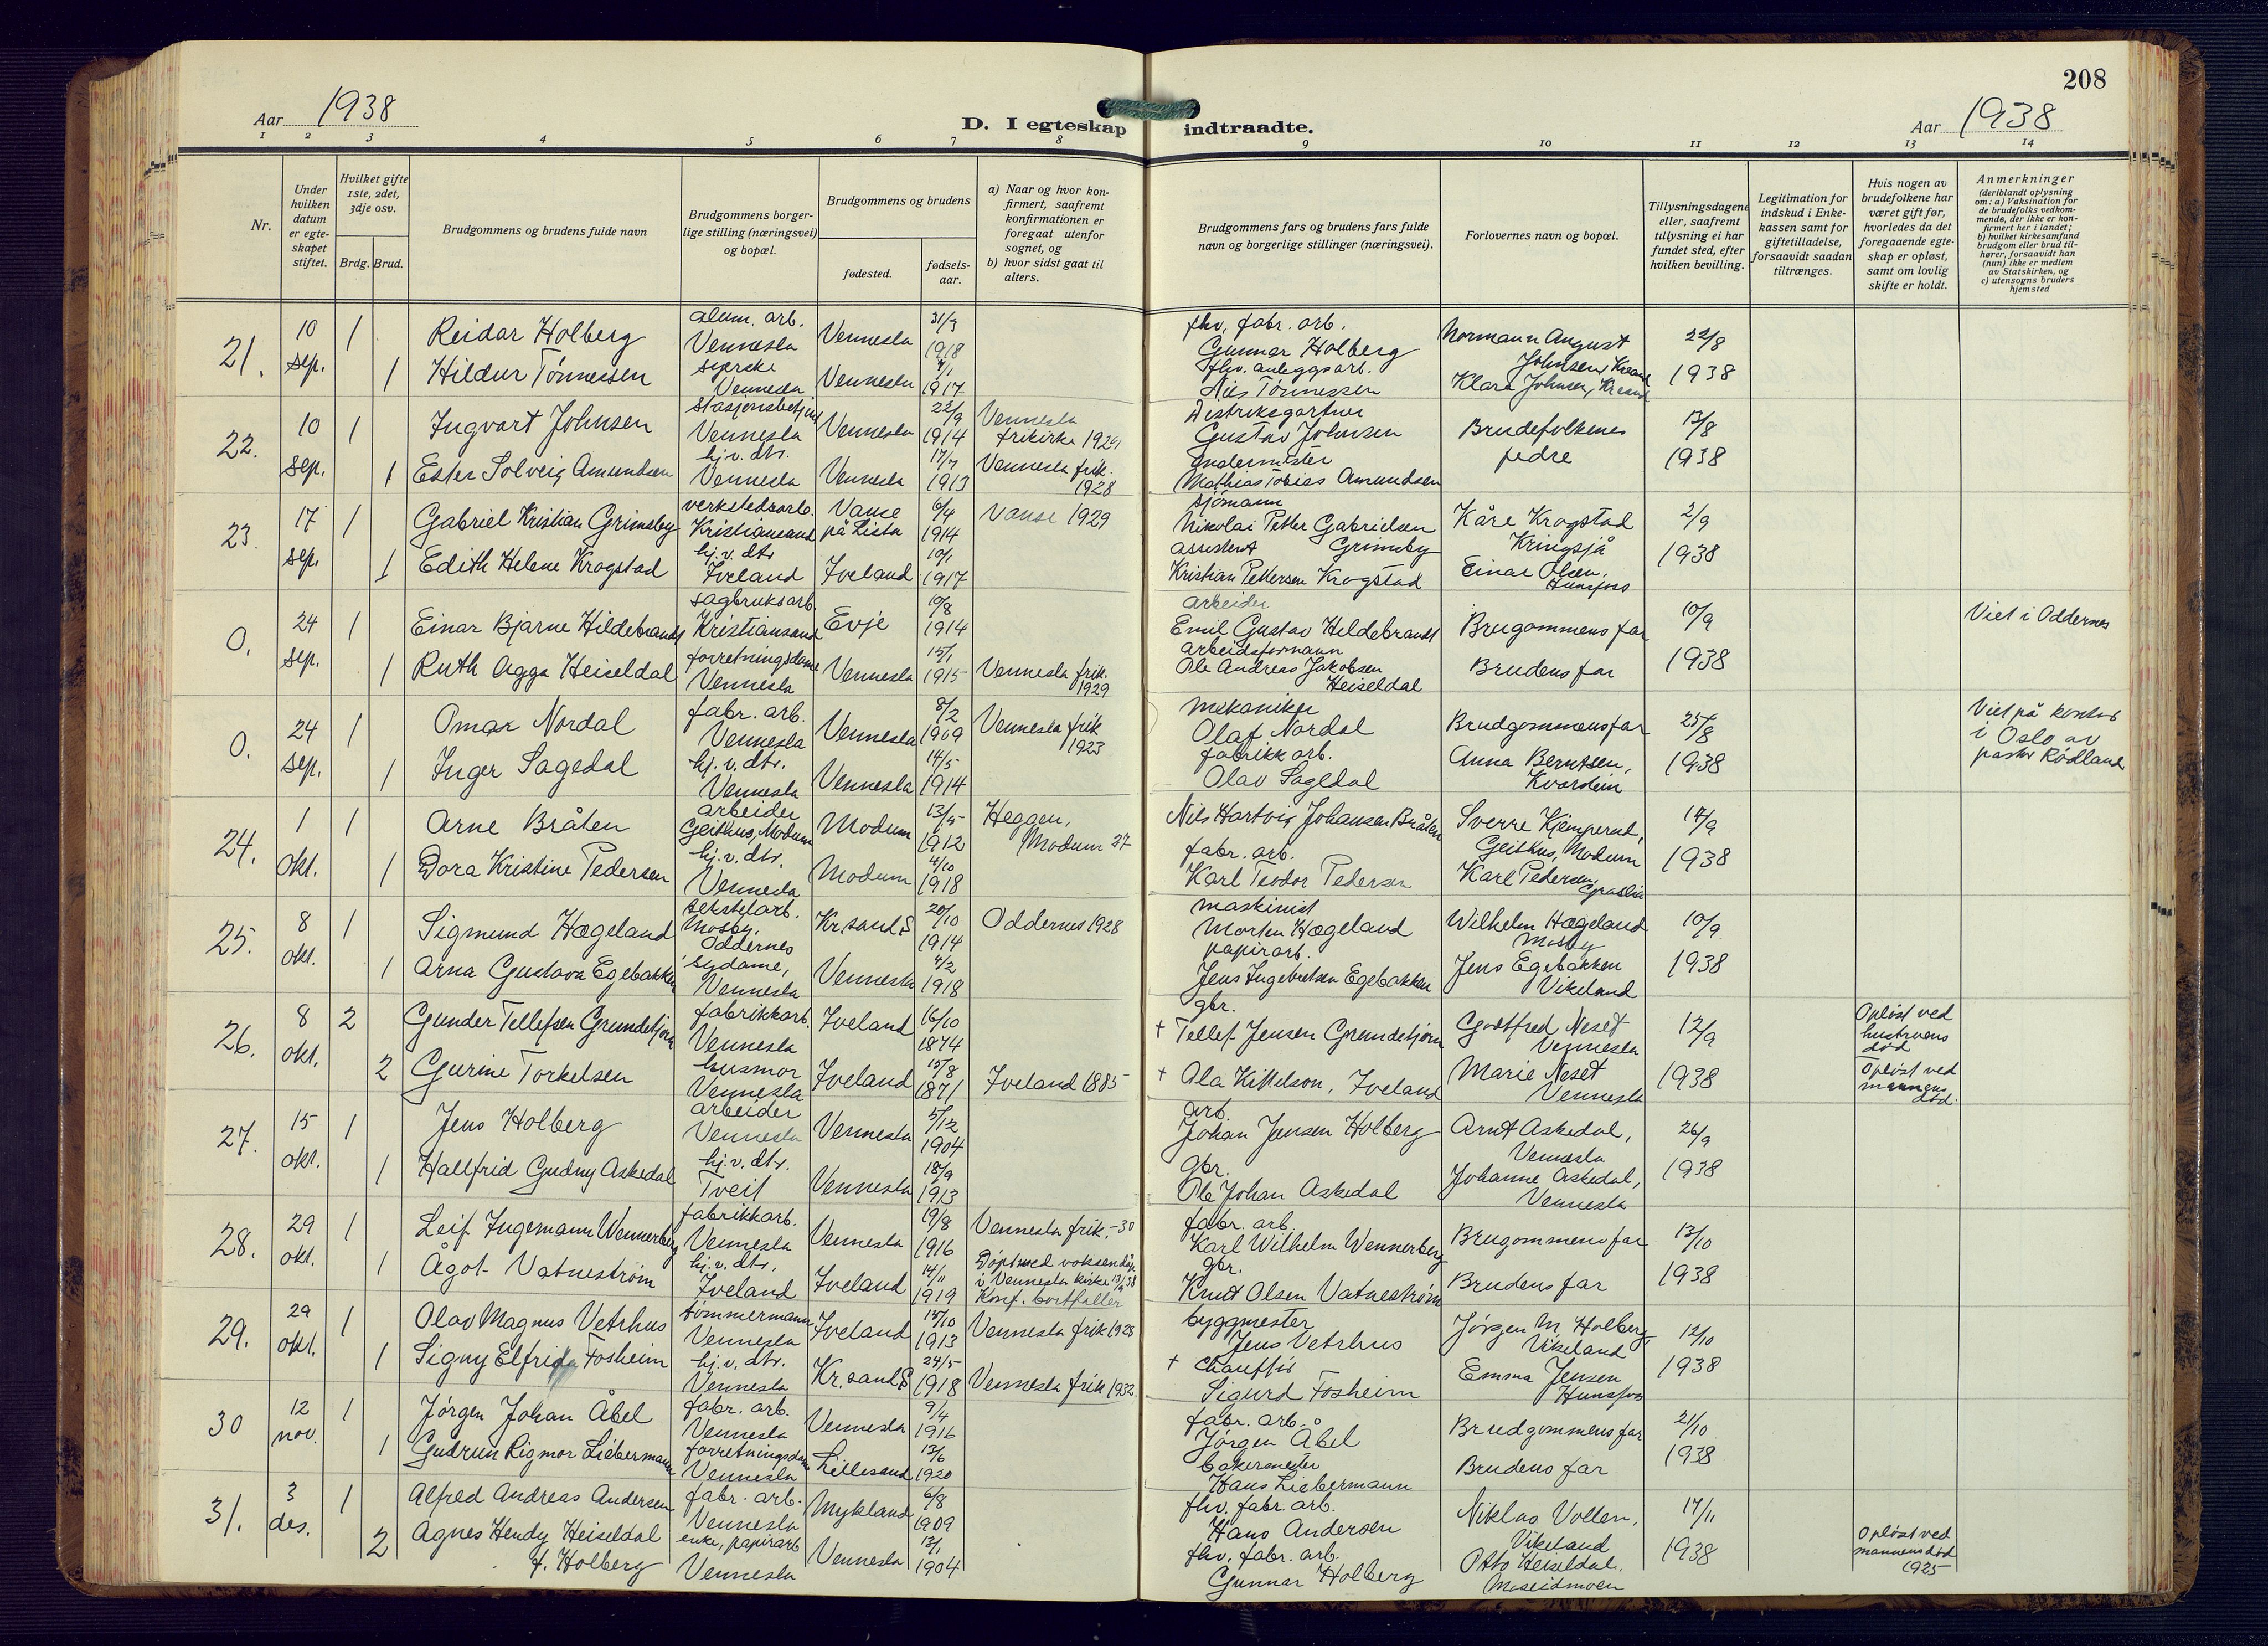 208
Aar 1938
D. I egteskap indtraadte.
Aar 1938
1 2 3 4 5 6 7 8 9 10 11 12 13 14
Nr.
Under hvilken datum er egte-skapet stiftet.
Hvilket gifte 1ste, 2det, 3dje osv.
Brdg. Brud.
Brudgommens og brudens fulde navn
Brudgommens borger-lige stilling (næringsvei) og bopæl.
Brudgommens og brudens
fødested.
fødsels-aar.
a) Naar og hvor kon-firmert, saafremt konfirmationen er foregaat utenfor sognet, og
b) hvor sidst gaat til alters.
Brudgommens fars og brudens fars fulde navn og borgerlige stillinger (næringsvei).
Forlovernes navn og bopæl.
Tillysningsdagene eller, saafremt tillysning ei har fundet sted, efter hvilken bevilling.
Legitimation for indskud i Enke-kassen samt for giftetilladelse, forsaavidt saadan tiltrænges.
Hvis nogen av brudefolkene har været gift før, hvorledes da det foregaaende egte-skap er opløst, samt om lovlig skifte er holdt.
Anmerkninger (deriblandt oplysning om: a) Vaksination for de brudefolks vedkom-mende, der ikke er kon-firmert her i landet; b) hvilket kirkesamfund brudgom eller brud til-hører, forsaavidt han (hun) ikke er medlem av Statskirken, og c) utensogns bruders hjemsted
21. 10 sep. 1 Reidar Holberg alum. arb. Vennesla Vennesla 31/3 1918 fhv. fabr. arb. Gunnar Holberg Normann August Johnsen, Krsand 22/8
1 Hildur Tønnessen syerske Vennesla Vennesla 7/1 1917 fhv. anleggsarb. Nils Tønnessen Klara Johnsen, Krsand 1938
22. 10 sep. 1 Ingvart Johnsen stasjonsbetjent Vennesla Vennesla 22/9 1914 Vennesla frikirke 1929 Distriksgartner Gustav Johnsen Brudefolkenes fedre 13/8
1 Ester Solveig Amundsen hj.v. dtr. Vennesla Vennesla 17/7 1913 Vennesla frik. 1928 Mathias Tobias Amundsen 1938
23. 17 sep. 1 Gabriel Kristian Grimsby verkstedsarb. Kristiansand Vanse på Lista 6/4 1914 Vanse 1929 sjömann Nikolai Petter Gabrielsen Grimsby Kåre Krogstad Kringsjå 2/9
1 Edith Helene Krogstad hj.v. dtr Iveland Iveland 10/1 1917 assistent Kristian Pettersen Krogstad Einar Olsen, Hunsfoss 1938
0. 24 sep. 1 Einar Bjarne Hildebrandt sagbruksarb. Kristiansand Evje 10/8 1914 arbeider Emil Gustav Hildebrandt Brugommens far 10/9 Viet i Oddernes
1 Ruth Agga Heiseldal forretningsdame Vennesla Vennesla 15/1 1915 Vennesla frik. 1929 arbeidsformann Ole Andreas Jakobsen Heiseldal Brudens far 1938
0. 24 sep. 1 Omar Nordal fabr. arb. Vennesla Vennesla 8/2 1909 Vennesla frik 1923 mekaniker Olaf Nordal Brudgommens far 25/8 Viet på kontor i Oslo av pastor Rödland
1 Inger Sagedal hj.v. dtr. Vennesla Vennesla 14/5 1914 fabrikk arb. Olav Sagedal Anna Berntsen, Kvarstein 1938
24. 1 okt. 1 Arne Bråten arbeider Geithus, Modum Modum 13/5 1912 Heggen, Modum 27 Nils Hartvig Johansen Bråten fabr. arb. Sverre Kjemperud, Geithus, Modum 17/9
1 Dora Kristine Pedersen hj.v. dtr. Vennesla Modum 4/10 1918 Karl Teodor Pedersen Karl Pedersen, 1938
25. 8 okt. 1 Sigmund Hægeland tekstilarb. Mosby, Oddernes Kr.sand S 20/10 1914 Oddernes 1928 maskinist Morten Hægeland Wilhelm Hægeland Mosby 10/9
1 Arna Gustava Egebakken sydame, Vennesla Vennesla 4/2 1918 papirarb. Jens Ingebretsen Egebakken Jens Egebakken Vikeland 1938
26. 8 okt. 2 Gunder Tellefsen Grundetjern fabrikkarb. Vennesla Iveland 16/10 1874 gbr. † Tellef Jensen Grundetjern Gottfred Neset Vennesla 12/9 Opløst ved hustruens død
2 Gurine Torkelsen husmor Vennesla Iveland 15/8 1871 Iveland 1885 † Ola Kittelson, Iveland Marie Neset Vennesla 1938 Opløst ved mannens død.
27. 15 okt. 1 Jens Holberg arbeider Vennesla Vennesla 5/12 1904 arb. Johan Jensen Holberg Arnt Askedal, Vennesla 26/9
1 Hallfrid Gudny Askedal hj.v. dtr. Tveit Vennesla 18/9 1913 gbr. Ole Johan Askedal Johanne Askedal, Vennesla 1938
28. 29 okt. 1 Leif Ingemann Wennerberg fabrikkarb. Vennesla Vennesla 19/8 1916 Vennesla frik, -30 fabr. arb. Karl Wilhelm Wennerberg Brugommens far 13/10
1 Ågot Vatneström hj.v. dtr. Iveland Iveland 14/11 1919 Döpt med voksendåp i Vennesla kirke Konf. bortfaller gbr. Knut Olsen Vatneström Brudens far 1938
29. 29 okt. 1 Olav Magnus Vetrhus tømmermann Vennesla Iveland 15/10 1913 Vennesla frik 1928 byggmester Jens Vetrhus Jörgen M. Holberg Vikeland 12/10
1 Signy Elfrida Fosheim hj.v. dtr. Vennesla Kr.sand S 24/5 1918 Vennesla frik 1932 † chauffør Sigurd Fosheim Emma Jensen Hunsfos 1938
30 12 nov. 1 Jörgen Johan Åbel fabr. arb. Vennesla Vennesla 9/4 1916 fabr. arb. Jørgen Åbel Brudgommens far 21/10
1 Gudrun Rigmor Liebermann forretningsdame Vennesla Lillesand 13/6 1920 bakermester Hans Liebermann Brudens far 1938
31. 3 des. 1 Alfred Andreas Andersen fabr. arb. Vennesla Mykland 6/8 1909 fhv. fabr. arb. Hans Andersen Niklas Vollen, Vikeland 17/11
2 Agnes Hendy Heiseldal f. Holberg enke, papirarb Vennesla Vennesla 13/1 1904 fhv. fabr. arb. Gunnar Holberg Otto Heiseldal, Moseidmoen 1938 Opløst ved mannens død 1925